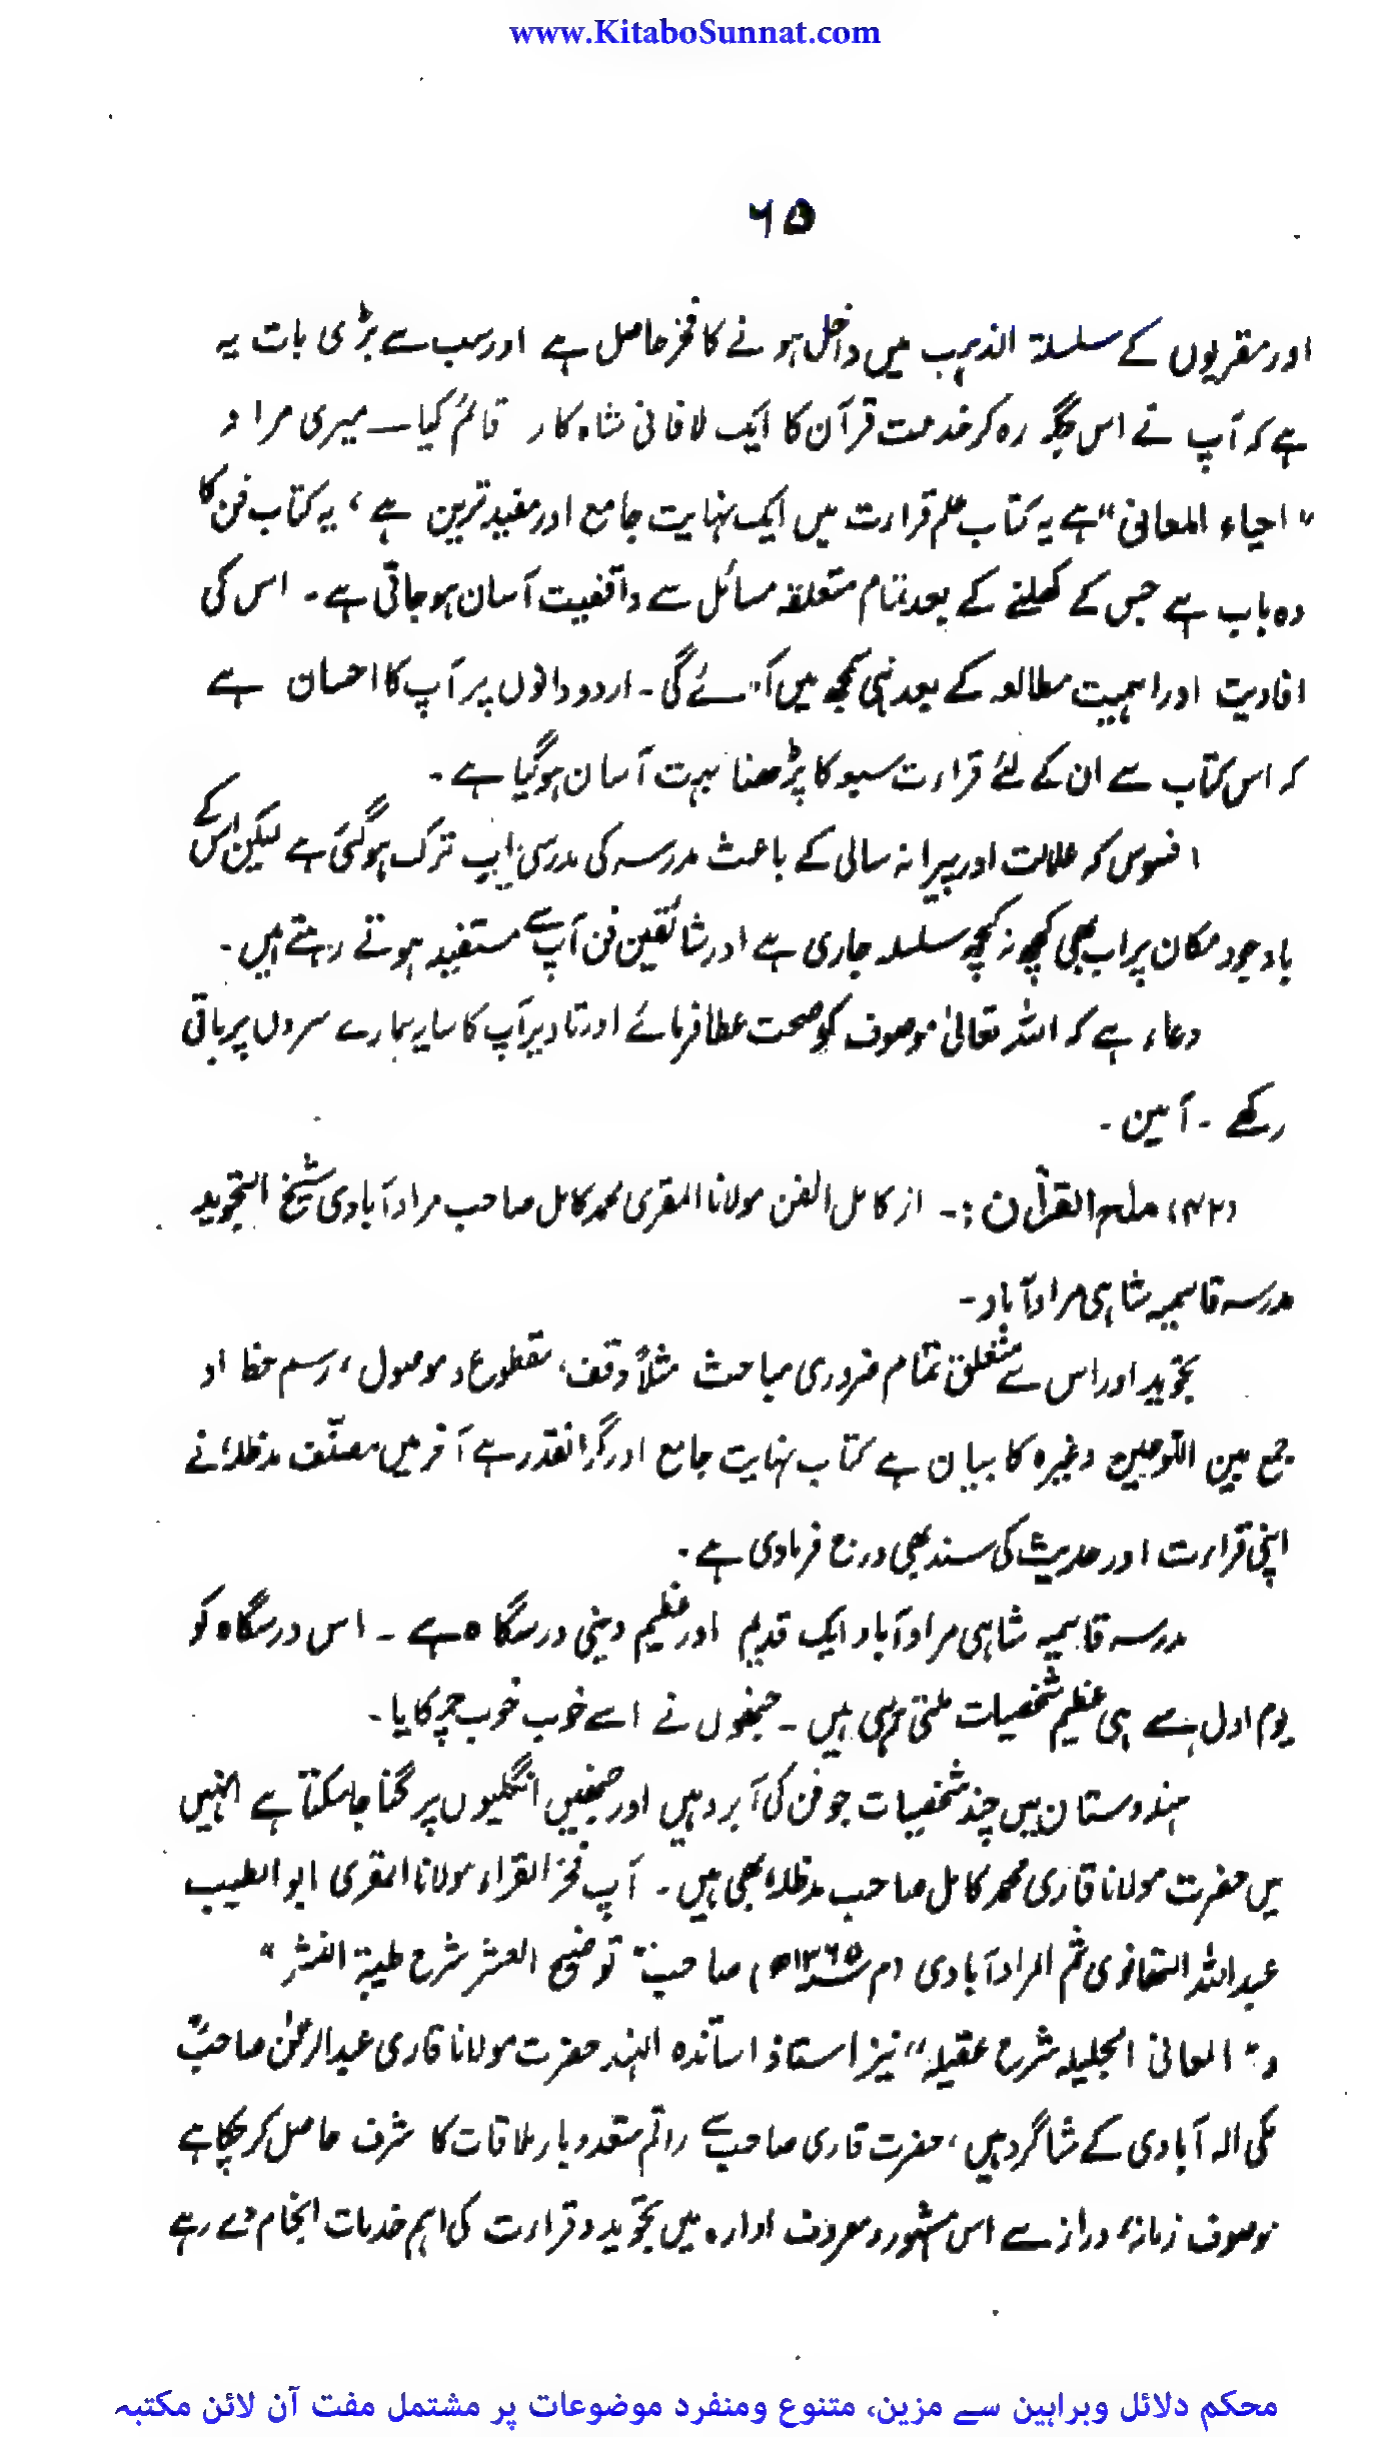 www.KitaboSunnat.com
٦٥
اور مقریوں کے سلسلۃ الذہب میں داخل ہونے کا فخر حاصل ہے اور سب سے بڑی بات یہ
ہے کہ آپ نے اس جگہ رہ کر خدمت قرآن کا ایک لافانی شاہ کار قائم کیا ــ میری مراد
"احیاء المعانی" ہے یہ کتاب علم قراءت میں ایک نہایت جامع اور مفید ترین ہے، یہ کتاب فن کا
وہ باب ہے جس کے کھلنے کے بعد تمام متعلقہ مسائل سے واقفیت آسان ہو جاتی ہے۔ اس کی
افادیت اور اہمیت مطالعہ کے بعد ہی سمجھ میں آئے گی۔ اردو دانوں پر آپ کا احسان ہے
کہ اس کتاب سے ان کے لئے قراءت سبعہ کا پڑھنا بہت آسان ہو گیا ہے۔
افسوس کہ علالت اور پیرانہ سالی کے باعث مدرسہ کی مدرسی اب ترک ہو گئی ہے لیکن اس کے
باوجود مکان پر اب بھی کچھ نہ کچھ سلسلہ جاری ہے اور شائقین فن آپ سے مستفید ہوتے رہتے ہیں۔
دعاء ہے کہ اللہ تعالیٰ موصوف کو صحت عطا فرمائے اور تا دیر آپ کا سایہ ہمارے سروں پر باقی
رکھے ۔ آمین ۔
(۴۲) ملح القرآن :۔ از کامل الفن مولانا المقری محمد کامل صاحب مرادآبادی شیخ التجوید
مدرسہ قاسمیہ شاہی مرادآباد۔
تجوید اور اس سے متعلق تمام ضروری مباحث مثلاً وقف، مقطوع و موصول، رسم خط او
جمع بین الوجہین وغیرہ کا بیان ہے کتاب نہایت جامع اور گرانقدر ہے آخر میں مصنّف مدظلہٗ نے
اپنی قراءت اور حدیث کی سند بھی درج فرمادی ہے۔
مدرسہ قاسمیہ شاہی مرادآباد ایک قدیم اور عظیم دینی درسگاہ ہے ۔ اس درسگاہ کو
یوم اول سے ہی عظیم شخصیات ملتی رہی ہیں ۔ جنھوں نے اسے خوب خوب چمکایا ۔
ہندوستان میں چند شخصیات جو فن کی آبرو ہیں اور جنھیں انگلیوں پر گنا جاسکتا ہے انہیں
میں حضرت مولانا قاری محمد کامل صاحب مدظلہٗ بھی ہیں ۔ آپ فخر القراء مولانا المقری ابو الطیب
عبداللہ التھانوی ثم المرادآبادی (م ۱۳۶۵ھ) صاحب "توضیح العشر شرح طیبۃ النشر"
و "المعانی الجلیلہ شرح عقیلہ" نیز استاذ اساتذہ الہند حضرت مولانا قاری عبدالرحمٰن صاحبؒ
مکی الہ آبادی کے شاگرد ہیں، حضرت قاری صاحب سے راقم متعدد بار ملاقات کا شرف حاصل کر چکا ہے
موصوف زمانۂ دراز سے اس مشہور و معروف ادارہ میں تجوید و قراءت کی اہم خدمات انجام دے رہے
محکم دلائل وبراہین سے مزین، متنوع ومنفرد موضوعات پر مشتمل مفت آن لائن مکتبہ